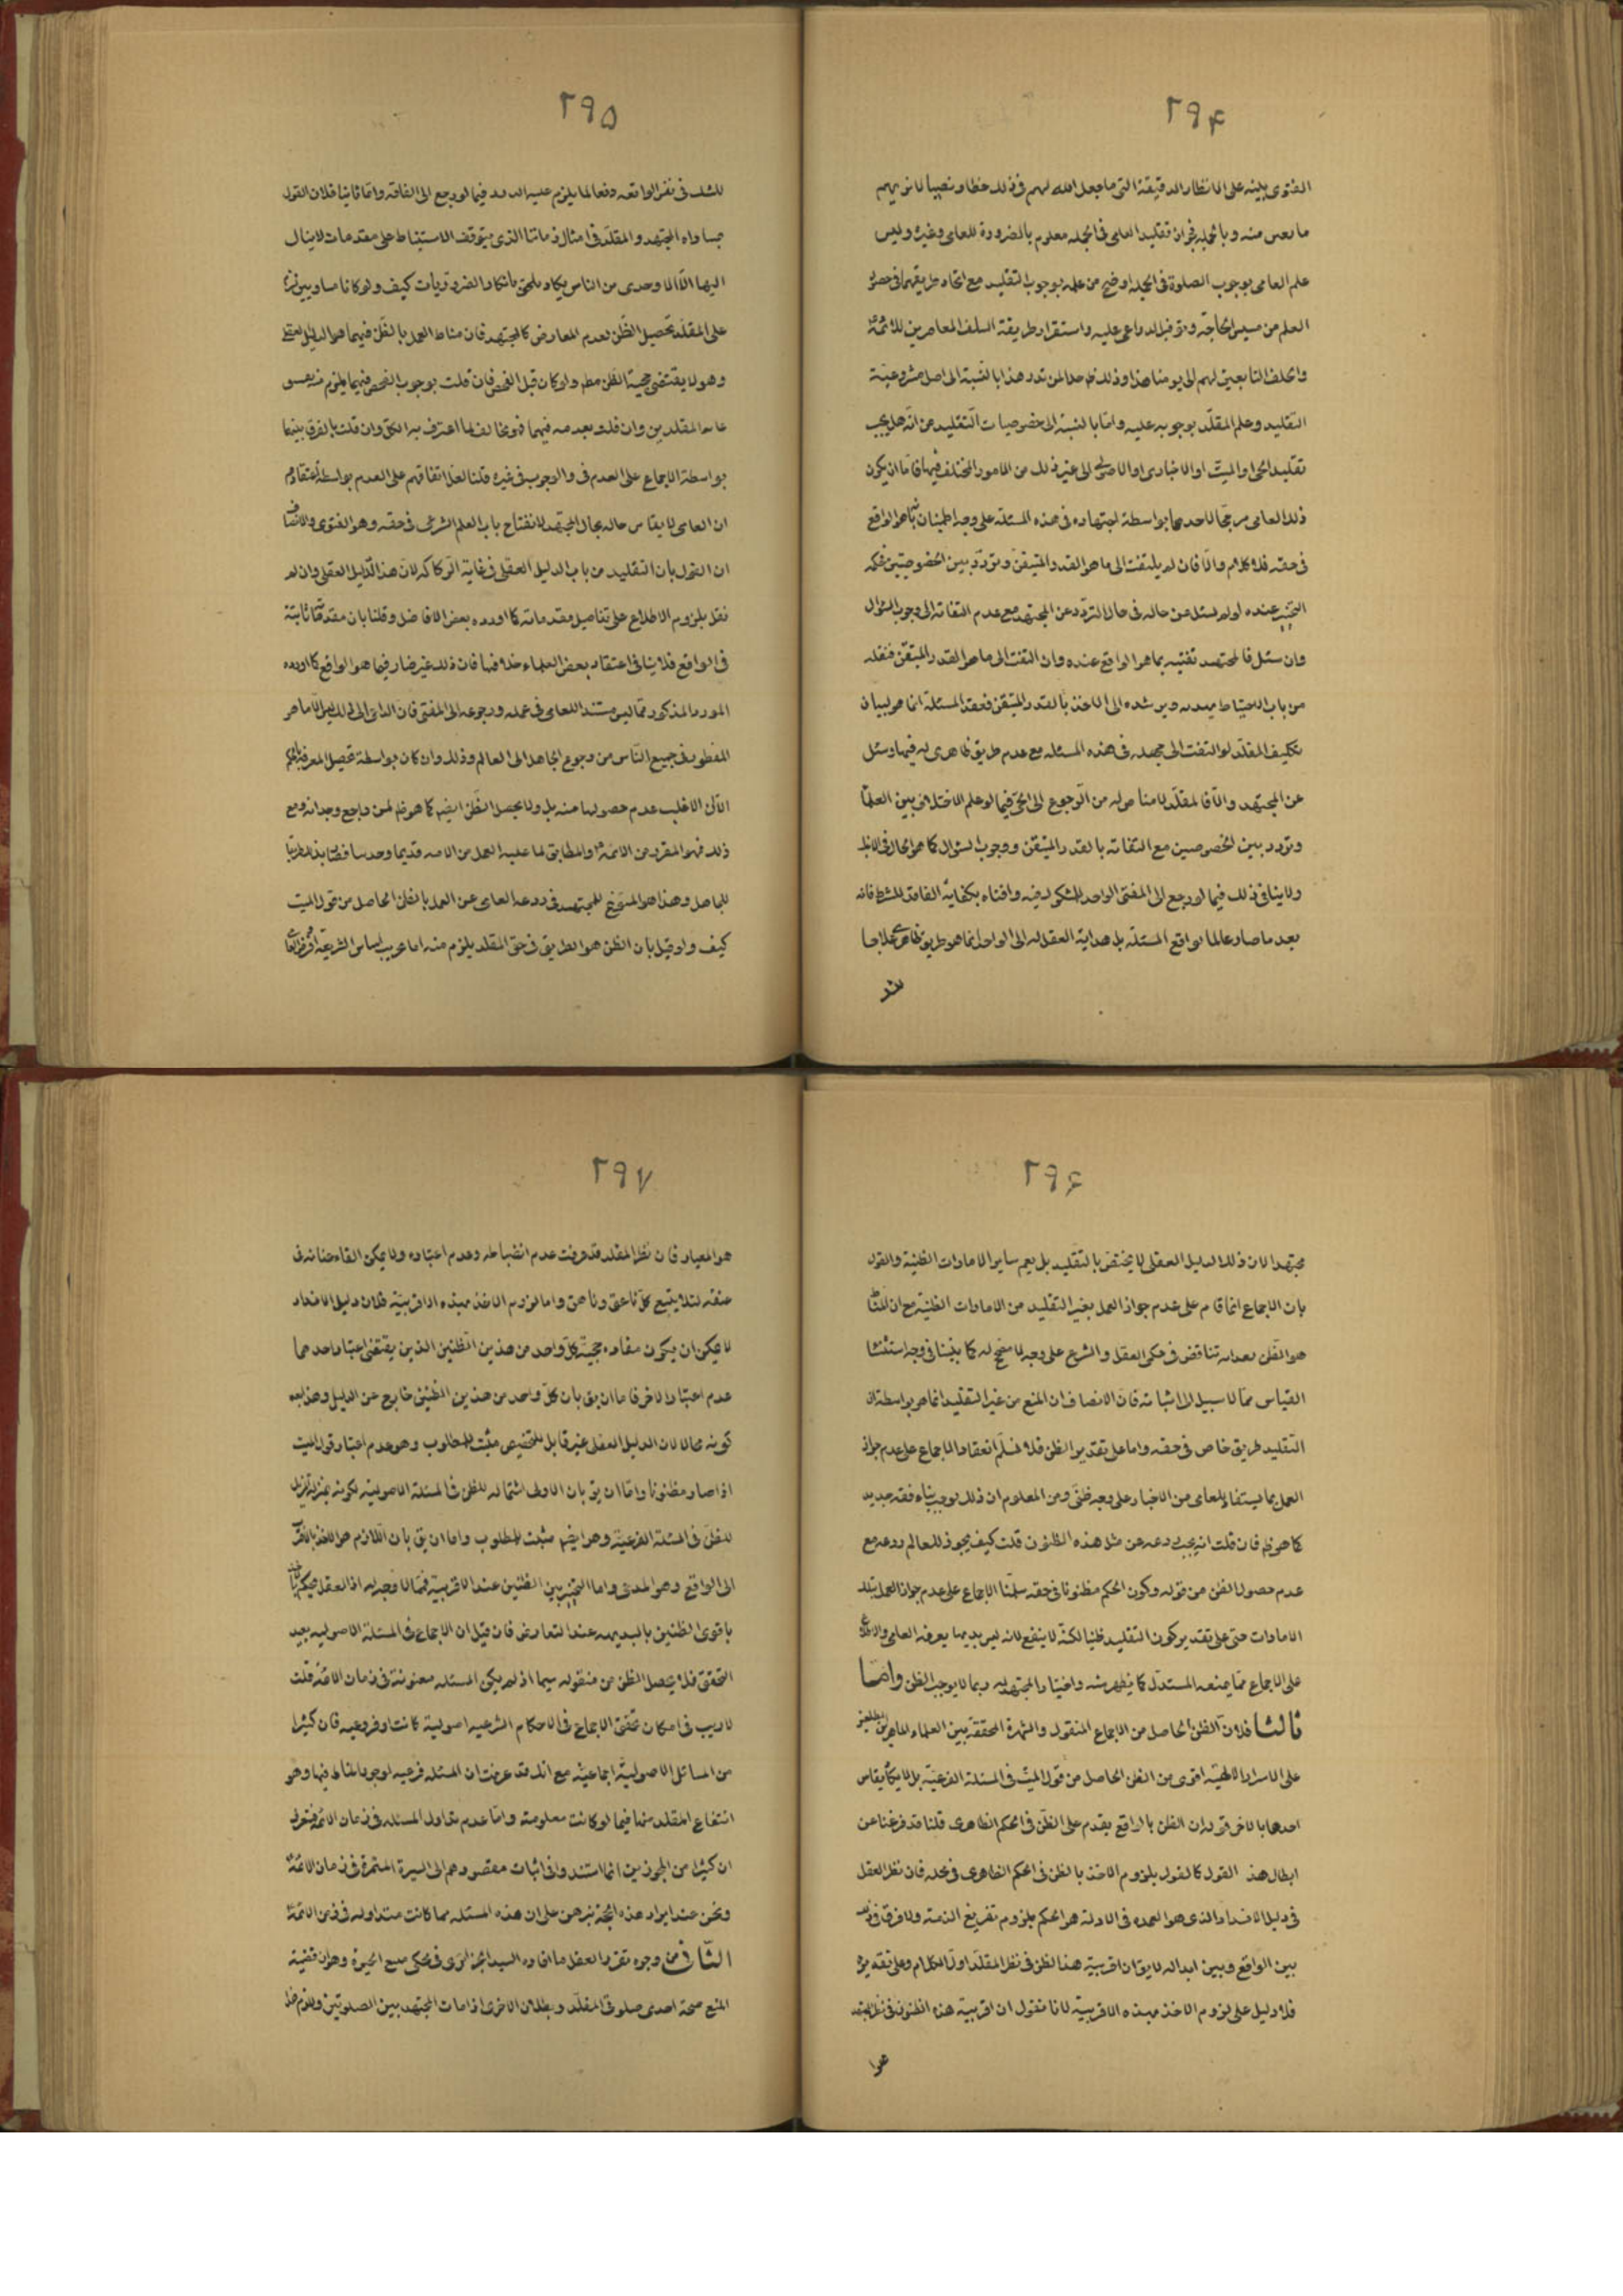 ۲۹۴
الفتوى مبنية على الانظار الدقيقة التى ما جعل الله لهم فى ذلك حظا و نصيبا لا نريهم
منه وبالجملة تقليد العامى فى الجملة معلوم بالضرورة للعامى وغيره وليس
علم العامى بوجوب الصلوة فى الجملة اوضح من علمه بوجوب التقليد مع اتحاد طريقهما فى حصول
العلم من مسيس الحاجة وتوفر الدواعى عليه واستقرار طريقة السلف المعاصرين للائمة
والخلف التابعين لهم الى يومنا هذا وذلك ظ لمن تدبر هذا بالنسبة الى اصل مشروعية
التقليد وعلم المقلد بوجوبه عليه واما بالنسبة الى خصوصيات التقليد من انه هل يجب
تقليد الحى او الميت او الاخبارى او الاصولى الى غير ذلك من الامور المختلف فيها فاما ان يكون
ذلك العامى مرجحا لاحدهما بواسطة اجتهاده فى هذه المسئلة على وجه اطمينان هو الواقع
فى حقه فلا كلام والا فان لم يلتفت الى ما هو القدر المتيقن وتردد بين الخصوصيتين فحكمه
التخيير عنده لو لم يسئل عن حاله فى حال التردد عن المجتهد مع عدم التفاته الى وجوب السؤال
وان سئل فالمجتهد تفتيه بما هو الواقع عنده وان التفت الى ما هو القدر المتيقن فعقله
من باب الاحتياط يهديه ويرشده الى الاخذ بالقدر المتيقن فعقد المسئلة انما هو لبيان
تكليف المقلد لو التفت الى جهله فى هذه المسئلة مع عدم طريق ظاهرى له فيها وسئل
عن المجتهد والا فالمقلد لا مناص له من الرجوع الى الحى فيما لو علم الاختلاف بين العلما
وتردد بين الخصوصين مع التفاته بالقدر المتيقن ووجوب السؤال كما هو الحال فى
ولا ينافى ذلك فيما لو رجع الى المفتى الواحد للشكوك فيه وافتاه بكفاية الفاقد للشرط فانه
بعد ما صار عالما بواقع المسئلة بل هداية العقل له الى الواحد انما هو طريق ظاهرى علاجا
۲۹۵
للشك فى نفس الواقعة دفعا لما يلزم عليه الدور فيما لو رجع الى الفاقد واما ثانيا فلان القول
بمساواة المجتهد والمقلد فى امثال زماننا الذى يتوقف الاستنباط على مقدمات لا ينال
اليها الا الاوحدى من الناس يكاد يلحق بانكار الضروريات كيف ولو كانا مساويين
على المقلد تحصيل الظن بعدم المعارض كالمجتهد فان مناط العمل بالظن فيهما هو الدليل العقلى
وهو لا يقتضى حجية الظن مط ولو كان قبل الفحص فان قلت بوجوب الفحص فيهما يلزم
المقلدين وان قلت بعدمه فيهما فهو مخالف لما اعترف به الكل وان قلت بالفرق بينهما
بواسطة الاجماع على العدم فى والوجوب فى غيره قلنا لعل اتفاقهم على العدم بواسطة اعتقادهم
ان العامى لا يقاس حاله بحال المجتهد لانفتاح باب العلم الشرعى فى حقه وهو الفتوى والانصاف
ان القول بان التقليد من باب الدليل العقلى فى غاية الركاكة لان هذا الدليل العقلى وان لم
نقل بلزوم الاطلاع على تفاصيل مقدماته كما اورده بعض الافاضل وقلنا بان مقدماته ثابتة
فى الواقع فلا ينافى اعتقاد بعض العلماء خلافها فان ذلك غير ضار فيما هو الواقع كما اورده
المورد المذكور مما ليس مستند للعامى فى عمله ورجوعه الى المفتى فان الداعى الى ذلك ليس الا ما هو
المفطور فى جميع الناس من رجوع الجاهل الى العالم وذلك وان كان بواسطة تحصيل المعرفة
الا ان الاغلب عدم حصولها منه بل ولا يحصل الظن ايضا كما هو ظ لمن راجع وجدانه ومع
ذلك فهو المقرر من الائمة والمطابق لما عليه العمل من الامة قديما وحديثا
للجاهل وهذا هو المسوغ للمجتهد فى ردعه العامى عن العمل بالظن الحاصل من قول الميت
كيف ولو قيل بان الظن هو الطريق فى حق المقلد يلزم منه اساس الشريعة
۲۹۶
مجتهدا لان ذلك الدليل العقلى لا يختص بالتقليد بل يعم سایر الامارات الظنية والقول
بان الاجماع انما قام على عدم جواز العمل بغير التقليد من الامارات الظنية مع ان المناط
هو الظن بعد انه تناقض فى حكمى العقل والشرع على وجه لا مصحح له كما بينا فى وجه استثناء
القياس مما لا سبيل الى اثباته فان الانصاف ان المنع من غير التقليد انما هو بواسطة ان
التقليد طريق خاص فى حقه واما على تقدير الظن فلا نسلم انعقاد الاجماع على عدم جواز
العمل بما يستفاد للعامى من الاخبار على وجه ظنى ومن المعلوم ان ذلك يوجب بناء فقه جديد
كما هو ظ فان قلت انه يجب ردعه عن مثل هذه الظنون قلت كيف يجوز للعالم ردعه مع
عدم حصول الظن من قوله وكون الحكم مظنونا فى حقه سلمنا الاجماع على عدم جواز العمل بتلك
الامارات حتى على تقدير كون التقليد ظنيا لكنه لا ينفع لانه ليس بديهيا يعرفه العامى والاطلاع
على الاجماع مما يمنعه المستدل كما يظهر منه واخبار المجتهد له ربما لا يوجب الظن واما
ثالثا فلان الظن الحاصل من الاجماع المنقول والشهرة المحققة بين العلماء الماهرين المطلعين
على الاسرار الالهية اقوى من الظن الحاصل من قول الميت فى المسئلة الفرعية بل لا يكاد يقاس
احدهما بالاخر قوله ان الظن بالواقع يقدم على الظن فى الحكم الظاهرى قلنا قد فرغنا عن
ابطال هذ القول كالقول بلزوم الاخذ بالظن فى الحكم الظاهرى فى محله فان نظر العقل
فى دليل الانسداد الذى هو العمدة فى الادلة هو الحكم بلزوم تفريغ الذمة ولا فرق فى ذلك
بين الواقع وبين ابداله لا يق ان اقربية هذا الظن فى نظر المقلد اول الكلام وعلى تقديره
فلا دليل على لزوم الاخذ بهذه الاقربية لانا نقول ان اقربية هذه الظنون فى نظر المجتهد
۲۹۷
هو المعيار فان نظر المقلد قد عرفت عدم انضباطه وعدم اعتباره ولا يمكن القاء عنانه فى
عنقه لئلا يتبع كل ناعق وناهق واما لزوم الاخذ بهذه الاقربية فلان دليل الانسداد
لا يمكن ان يكون مفاده حجية كل واحد من هذين الظنين الذين يقتضى اعتبار احدهما
عدم اعتبار الاخر فاما ان يق بان كل واحد من هذين الظنين خارج عن الدليل وهذا بعد
كونه محالا لان الدليل العقلى غير قابل للتخصيص مثبت للمطلوب وهو عدم اعتبار قول الميت
اذا صار مظنونا واما ان يق بان الاولى اشتماله للظن فى المسئلة الاصولية لكونه بمنزلة المزيل
للظن فى المسئلة الفرعية وهو ايض مثبت للمطلوب واما ان يق بان اللازم هو الاخذ بالاقرب
الى الواقع وهو المدعى واما التخيير بين الظنين عند الاقربية فمما لا وجه له اذ العقل يحكم
باقوى الظنين بالبديهة عند التعارض فان قيل ان الاجماع فى المسئلة الاصولية بعيد
التحقق فلا يحصل الظن من منقوله سيما اذ لم يكن المسئلة معنونة فى زمان الائمة قلت
لا ريب فى امكان تحقق الاجماع فى الاحكام الشرعية اصولية كانت او فرعية فان كثيرا
من المسائل الاصولية اجماعية مع انك قد عرفت ان المسئلة فرعية لوجود المناط فيها وهو
انتفاع المقلد منها فيما لو كانت معلومة واما عدم تداول المسئلة فى زمان الائمة فنقول
ان كثيرا من المجوزين انما استندوا فى اثبات مقصودهم الى السيرة المستمرة فى زمان الائمة
ونحن عند ايراد هذه الحجة نبرهن على ان هذه المسئلة مما كانت متداولة فى زمن الائمة
الثانى من وجوه تقرير العقل ما افاده السيد الجزائرى فى محكى منبع الحيوة وهو ان قضية
المنع صحة احدى صلوتى المقلد وبطلان الاخرى اذا مات المجتهد بين الصلوتين